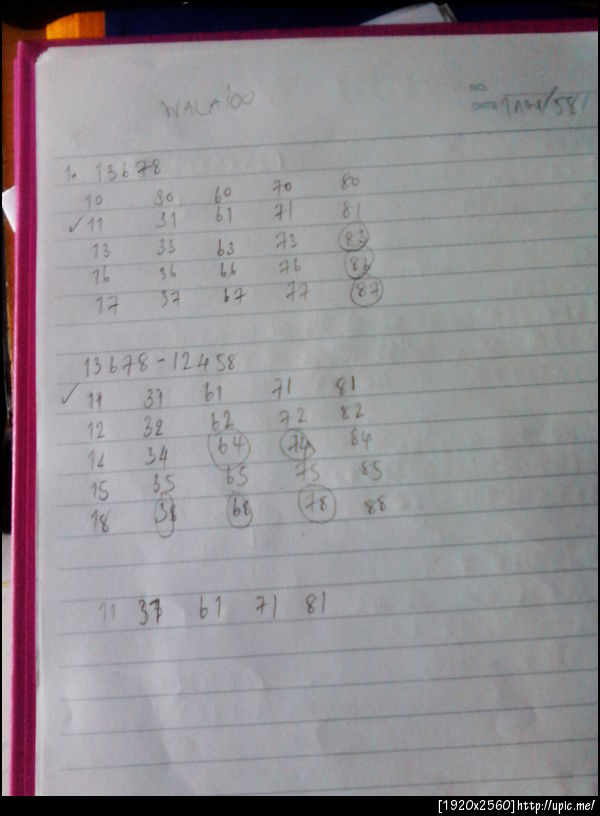 NO.
WALAIOO
DATE 1 /58/
1. 13678
10 30 60 70 80
✓ 11 31 61 71 81
13 33 63 73 83
16 36 66 76 86
17 37 67 77 87
13678-12458
✓ 11 31 61 71 81
12 32 62 72 82
14 34 64 74 84
15 35 65 75 85
18 38 68 78 88
11 31 61 71 81
[1920x2560]http://upic.me/